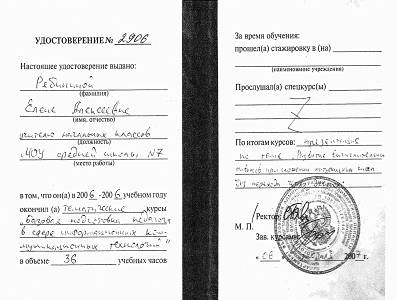 УДОСТОВЕРЕНИЕ № 2906
Настоящее удостоверение выдано:
Рябининой
(фамилия)
Елене Алексеевне
(имя, отчество)
учителю начальных классов
(должность)
МОУ средней школы №7
(место работы)
в том, что он(а) в 2006-2006 учебном году
окончил (а) тематические курсы
"Базовая подготовка педагога
в сфере информационных ком-
муникационных технологий"
в объеме 36 учебных часов
За время обучения:
прошел(а) стажировку в (на)
(наименование учреждения)
Прослушал(а) спецкурс(ы)
Z
По итогам курсов: презентация
по теме "Развитие
при сложении
Ректор
М. П.
Зав. курсами
2007 г.